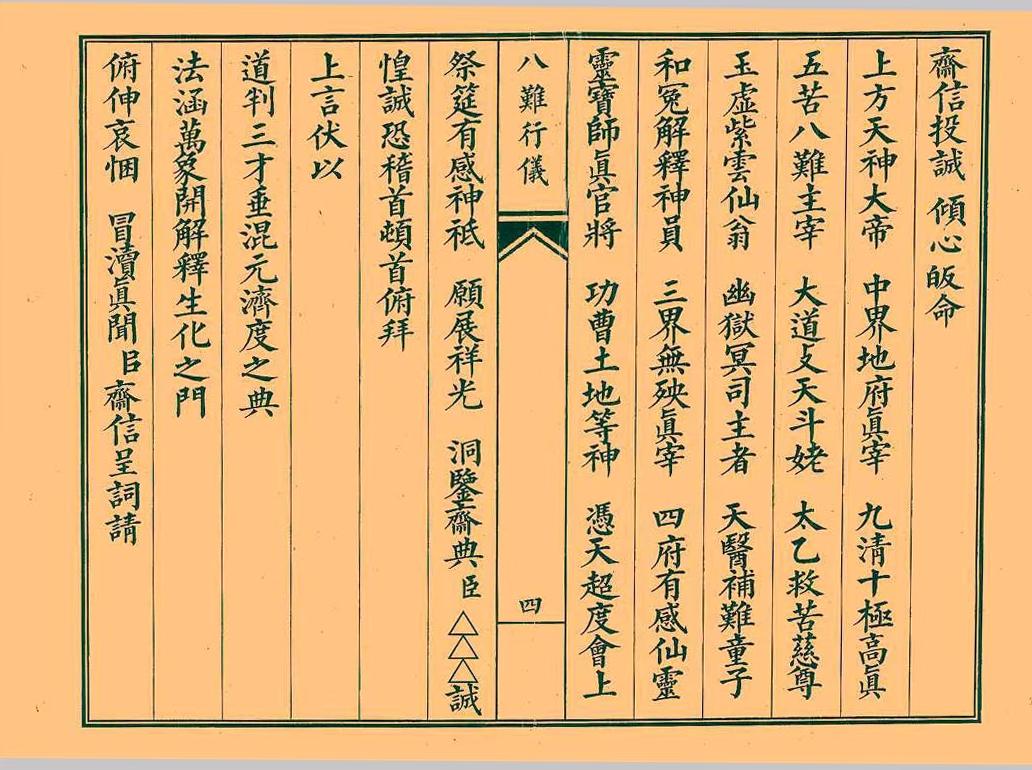 齋信投誠 傾心皈命
上方天神大帝 中界地府眞宰 九清十極高眞
五苦八難主宰 大道攴天斗姥 太乙救苦慈尊
玉虛紫雲仙翁 幽獄冥司主者 天醫補難童子
和冤解釋神員 三界無殃眞宰 四府有感仙靈
靈寶師眞官將 功曹土地等神 憑天超度會上
八難行儀 四
祭筵有感神祇 願展祥光 洞鑒齋典 臣 △△△誠
惶誠恐稽首頓首俯拜
上言伏以
道判三才垂混元濟度之典
法涵萬象開解釋生化之門
俯伸哀悃 冒瀆眞聞 臣齋信呈詞請